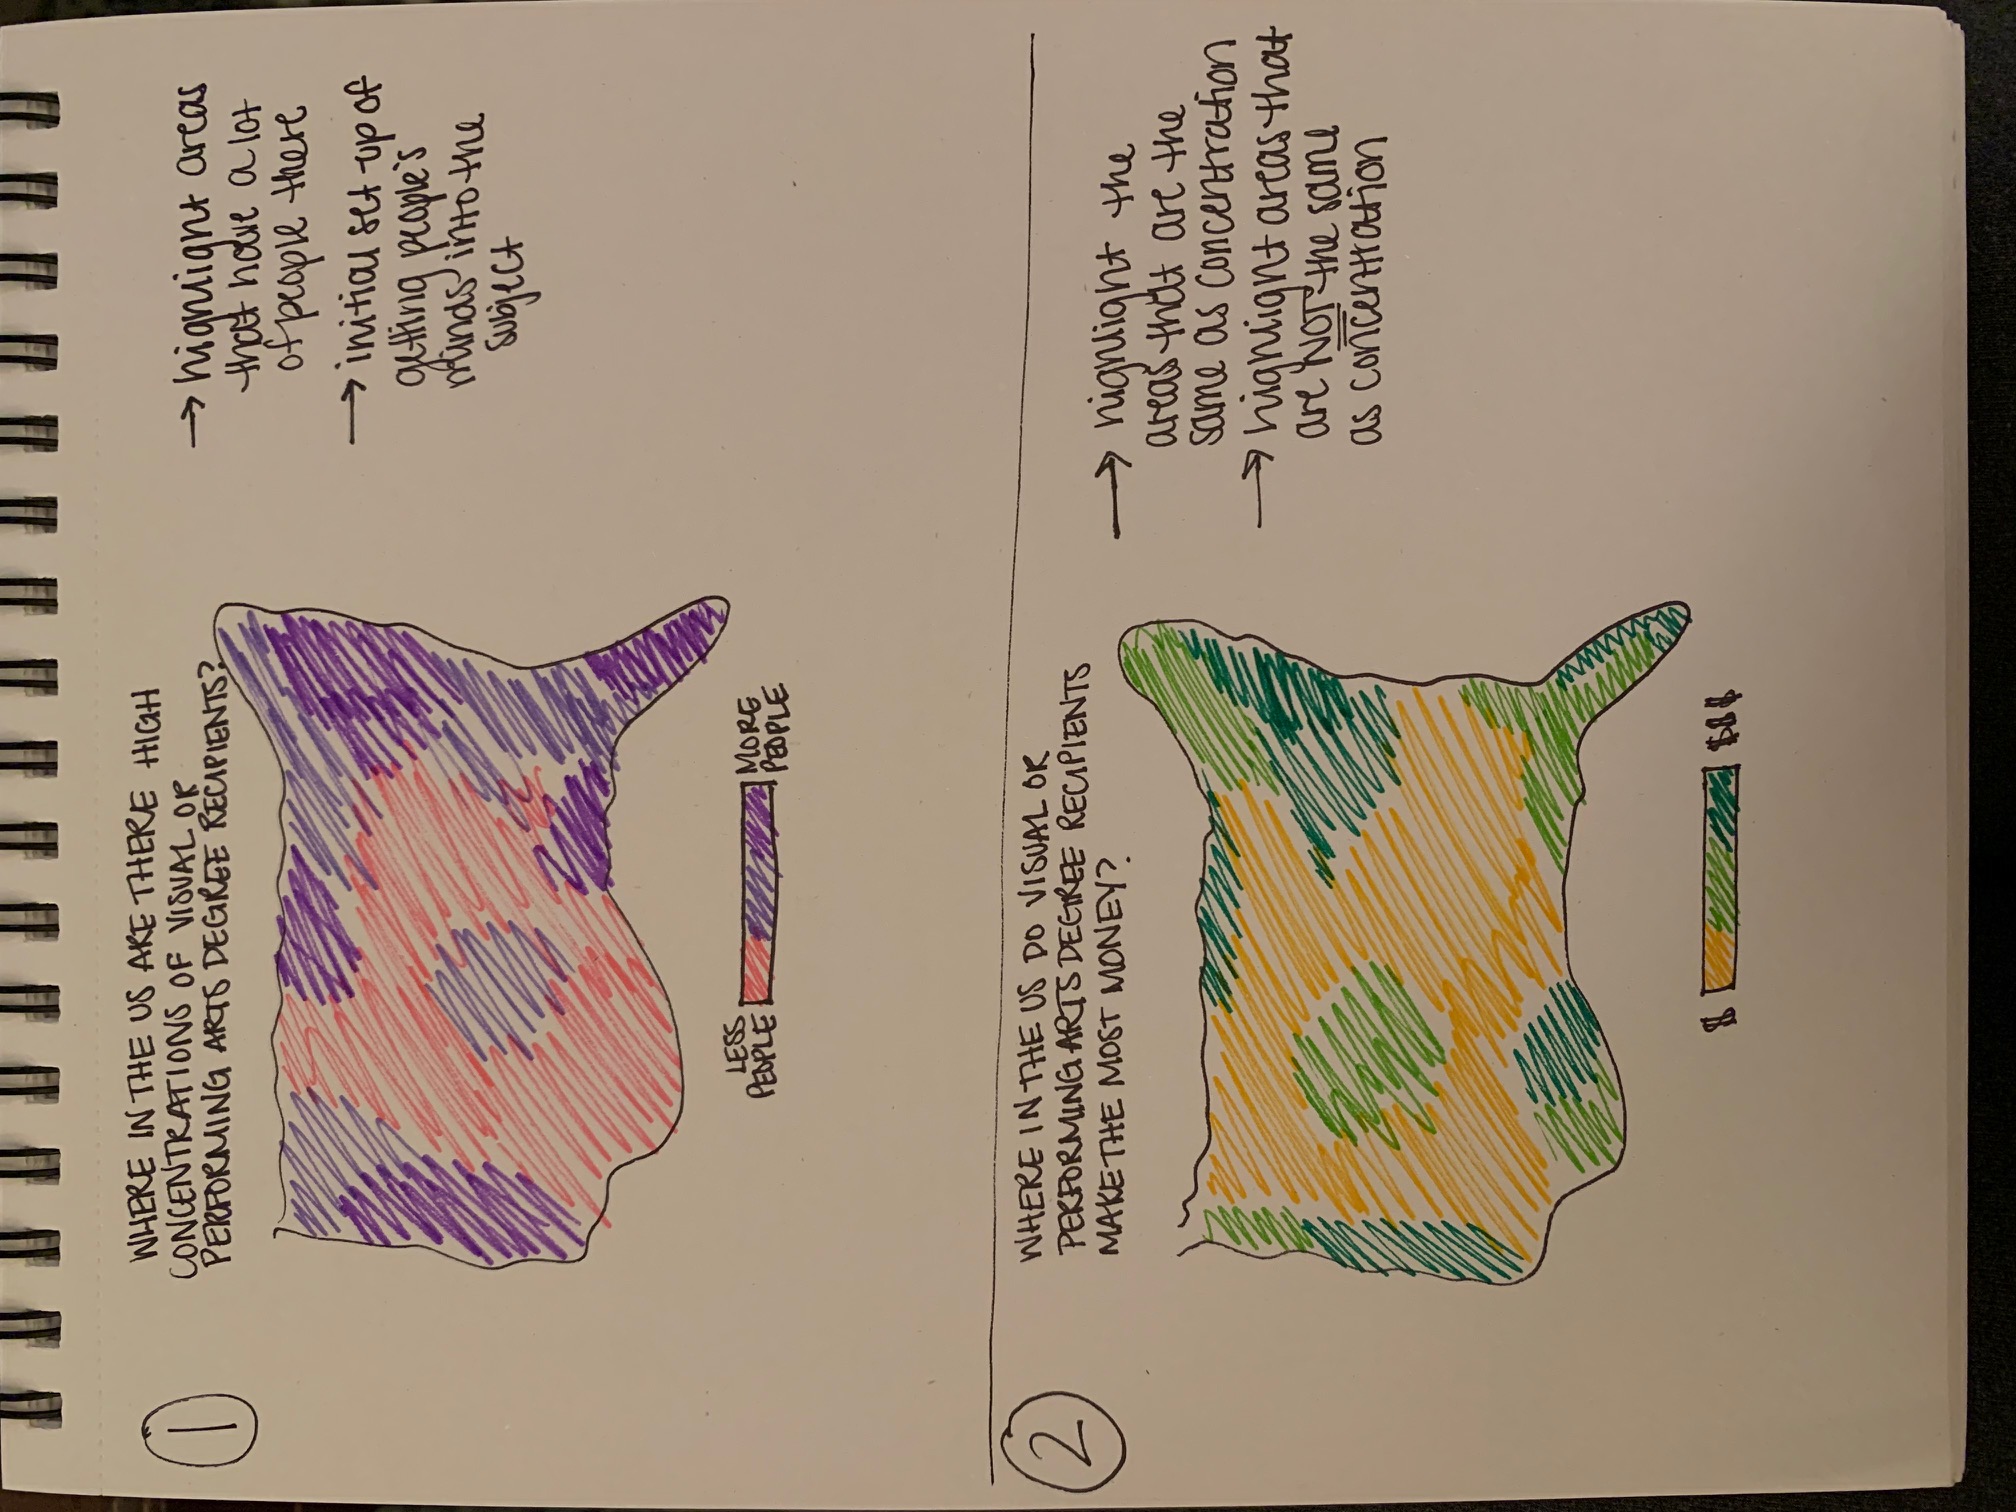 1
WHERE IN THE US ARE THERE HIGH
CONCENTRATIONS OF VISUAL OR
PERFORMING ARTS DEGREE RECIPIENTS?
→ highlight areas
that have a lot
of people there
→ initial set up of
getting people's
minds into the
subject
LESS
PEOPLE
MORE
PEOPLE
2
WHERE IN THE US DO VISUAL OR
PERFORMING ARTS DEGREE RECIPIENTS
MAKE THE MOST MONEY?
→ highlight the
areas that are the
same as concentration
→ highlight areas that
are NOT the same
as concentration
$
$$$